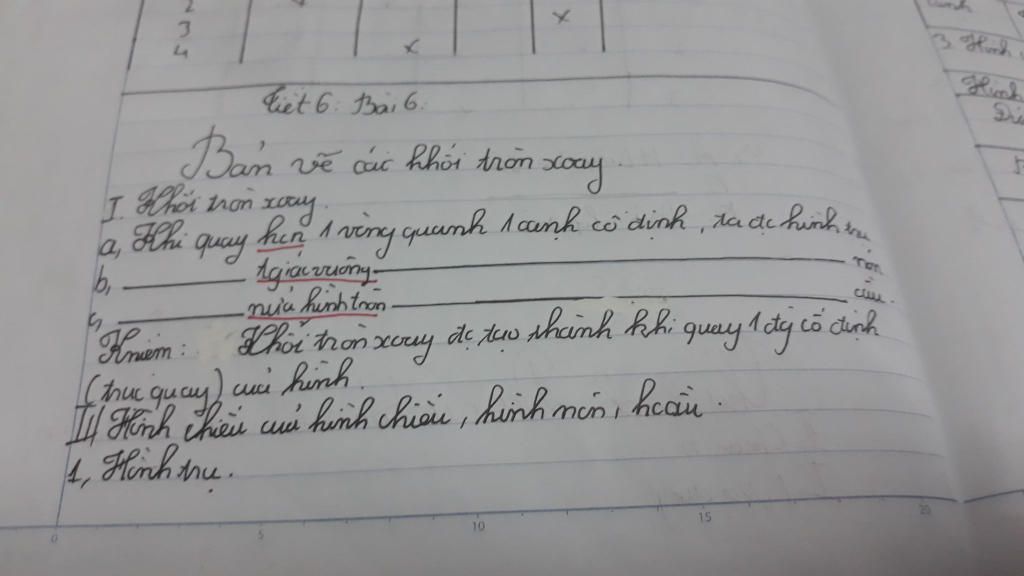 2
3 x
4 x
Tiết 6: Bài 6.
Bản vẽ các khối tròn xoay.
I. Khối tròn xoay.
a, Khi quay hcn 1 vòng quanh 1 cạnh cố định, ta đc hình trụ
b, ——— tgiác vuông ——— nón
c, ——— nửa hình tròn ——— cầu.
Kniệm: Khối tròn xoay đc tạo thành khi quay 1 đg cố định
(trục quay) của hình.
II/ Hình chiếu của hình chiếu, hình nón, hcầu.
1, Hình trụ.
0 5 10 15 20
3. Hình
Hình